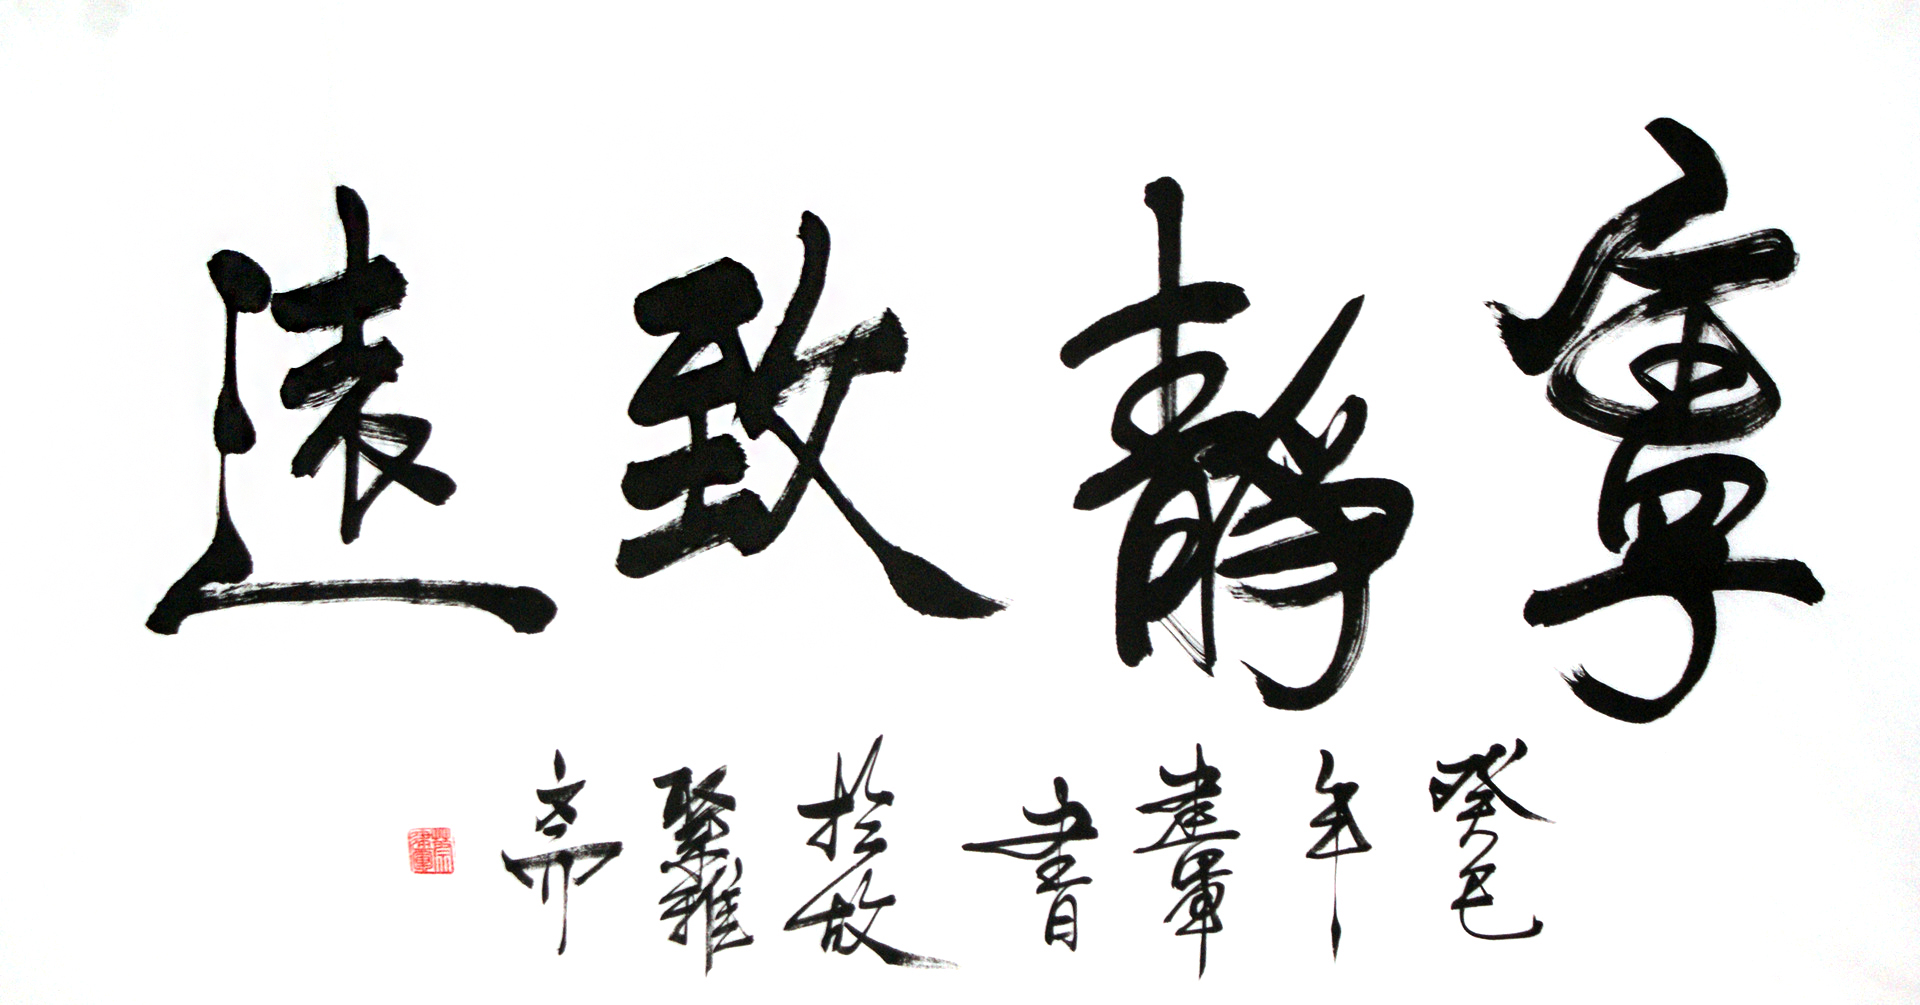 寧靜致遠
癸巳
年
建軍
書
於故
聚雅
齋